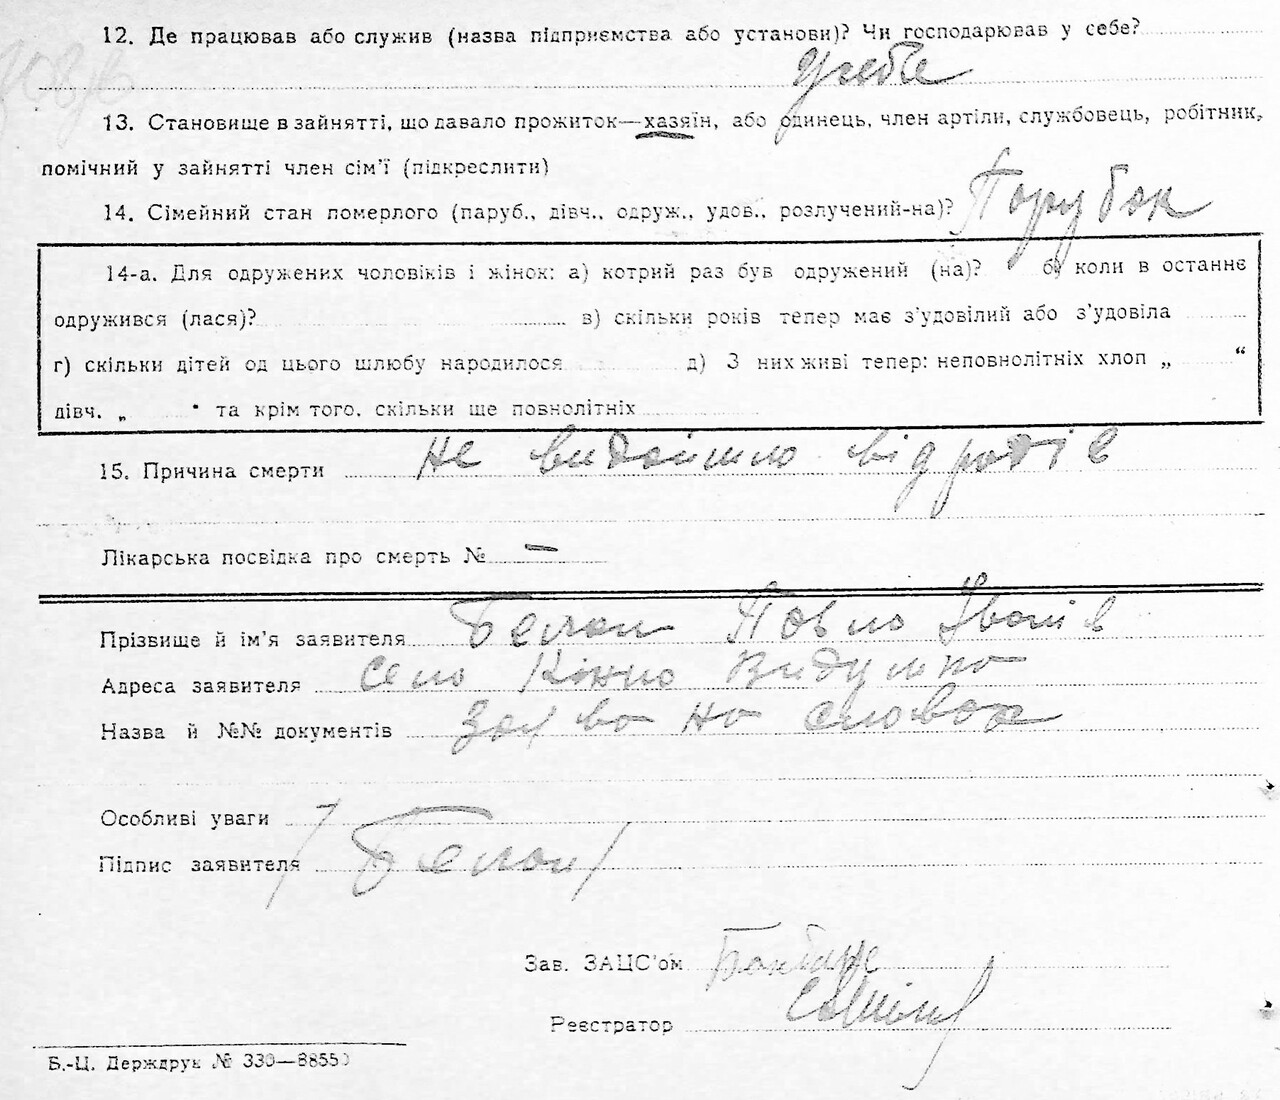 12. Де працював або служив (назва підприємства або установи)? Чи господарював у себе?
У себе
13. Становище в зайнятті, що давало прожиток—хазяїн, або одинець, член артіли, службовець, робітник,
помічний у зайнятті член сім'ї (підкреслити)
14. Сімейний стан померлого (паруб., дівч., одруж., удов., розлучений-на)? Парубок
14-а. Для одружених чоловіків і жінок: а) котрий раз був одружений (на)? б) коли в останнє
одружився (лася)? в) скільки років тепер має з'удовілий або з'удовіла
г) скільки дітей од цього шлюбу народилося д) З них живі тепер: неповнолітніх хлоп „ “
дівч. „ " та крім того, скільки ще повнолітніх
15. Причина смерти не видойшло від родів
Лікарська посвідка про смерть № —
Прізвище й ім'я заявителя Павло Іванів
Адреса заявителя Село
Назва й №№ документів на словах
Особливі уваги
Підпис заявителя
Зав. ЗАЦС'ом
Реєстратор
Б.-Ц. Держдрук № 330—8855